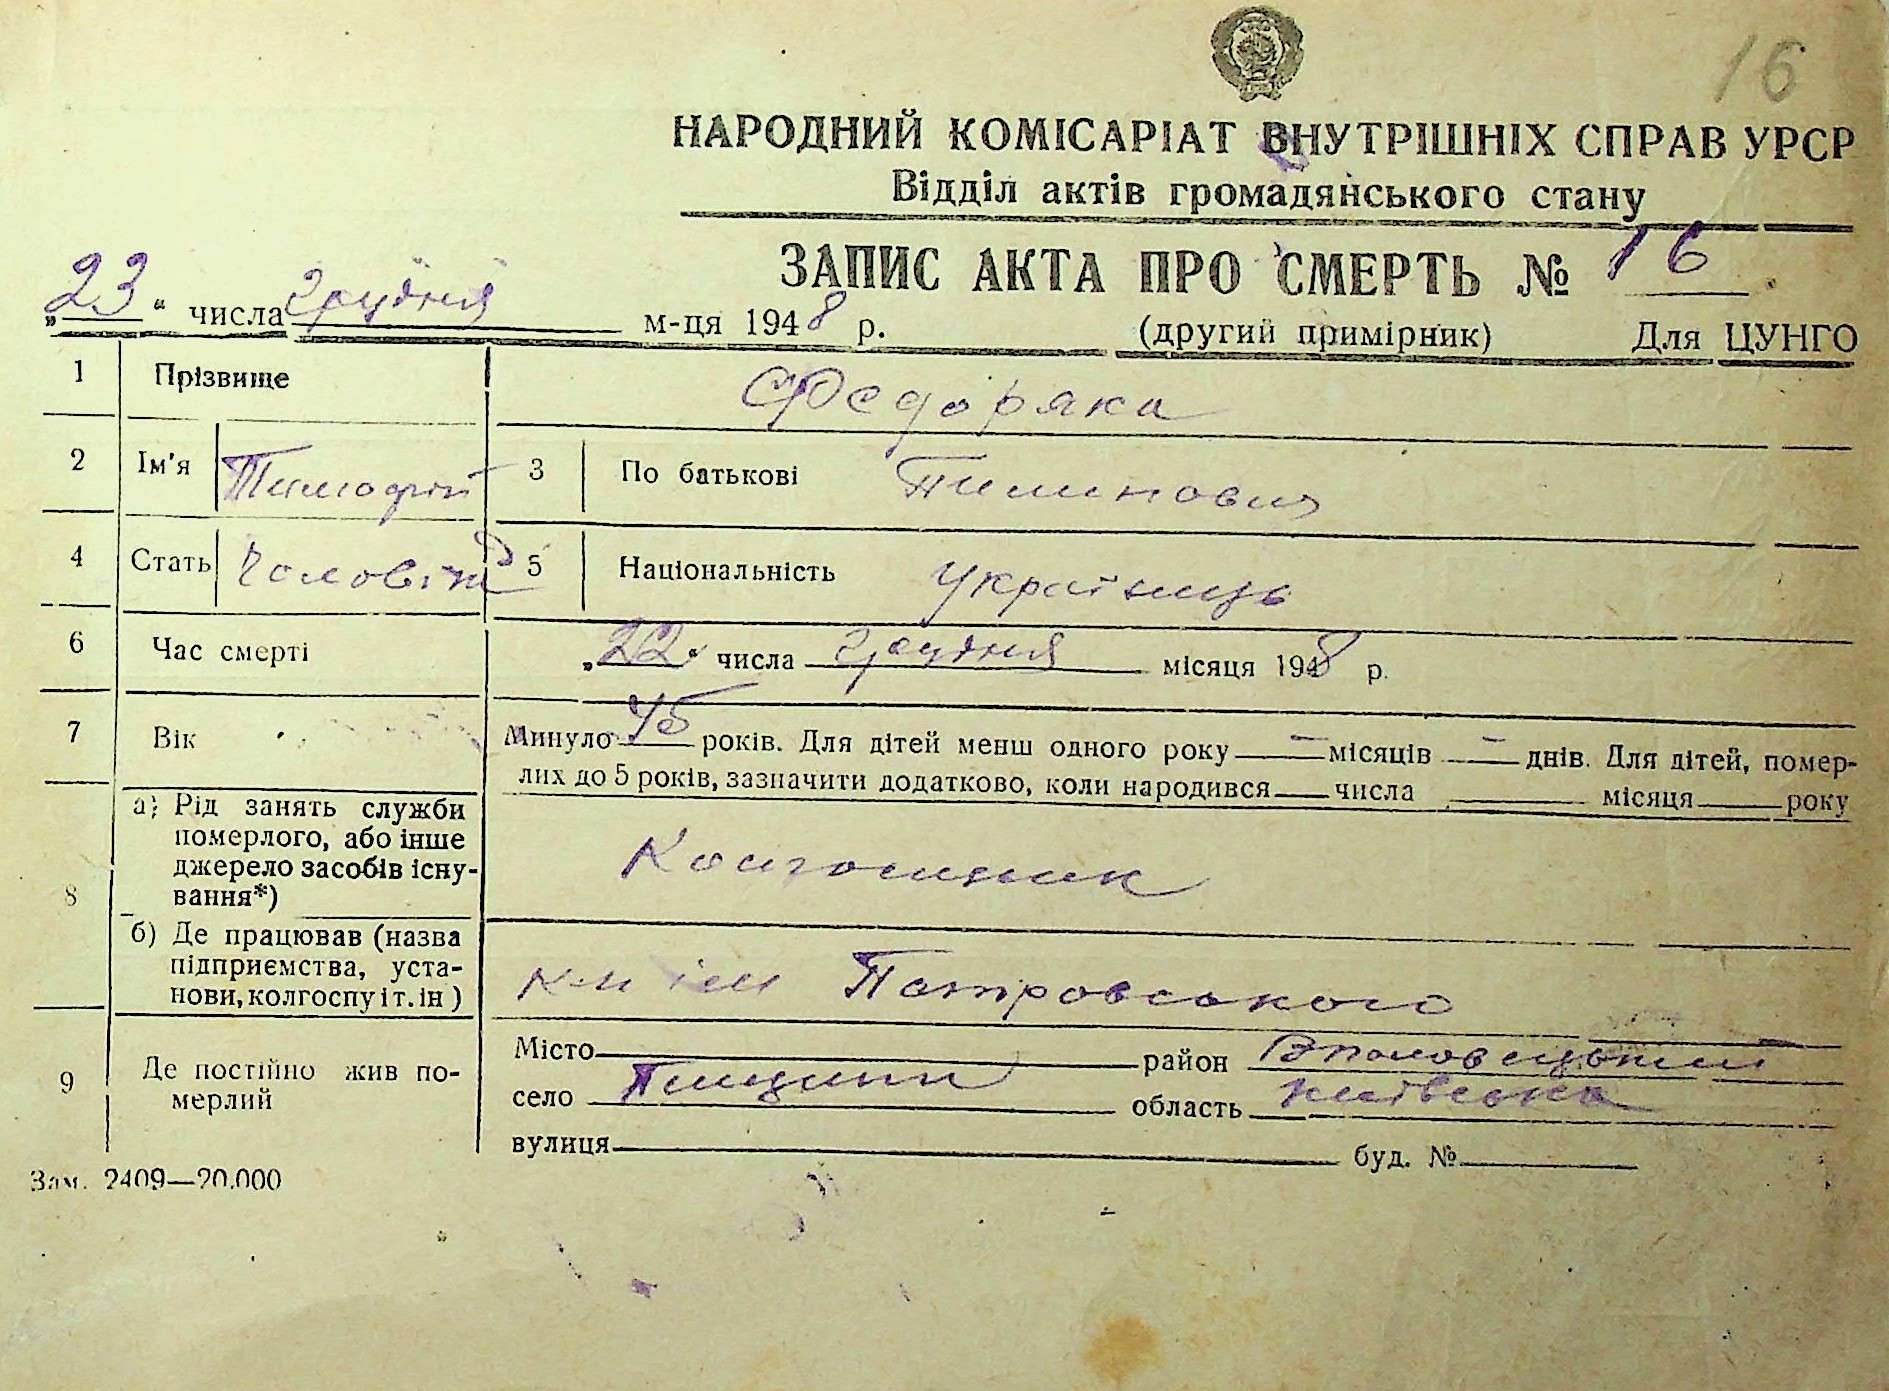 16
НАРОДНИЙ КОМІСАРІАТ ВНУТРІШНІХ СПРАВ УРСР
Відділ актів громадянського стану
ЗАПИС АКТА ПРО СМЕРТЬ № 16
„23“ числа грудня м-ця 1948 р. (другий примірник) Для ЦУНГО
1 Прізвище Федоряка
2 Ім'я Тимофій 3 По батькові Пилипович
4 Стать Чоловіч 5 Національність Українець
6 Час смерті „22“ числа грудня місяця 1948 р.
7 Вік Минуло 75 років. Для дітей менш одного року — місяців — днів. Для дітей, помер-
лих до 5 років, зазначити додатково, коли народився числа місяця року
8 а) Рід занять служби
померлого, або інше
джерело засобів існу-
вання*)
Колгоспник
б) Де працював (назва
підприємства, уста-
нови, колгоспу і т. ін)
к-п ім Петровського
9 Де постійно жив по-
мерлий
Місто район
село Пищики область Київська
вулиця буд. №
Зам. 2409—20.000